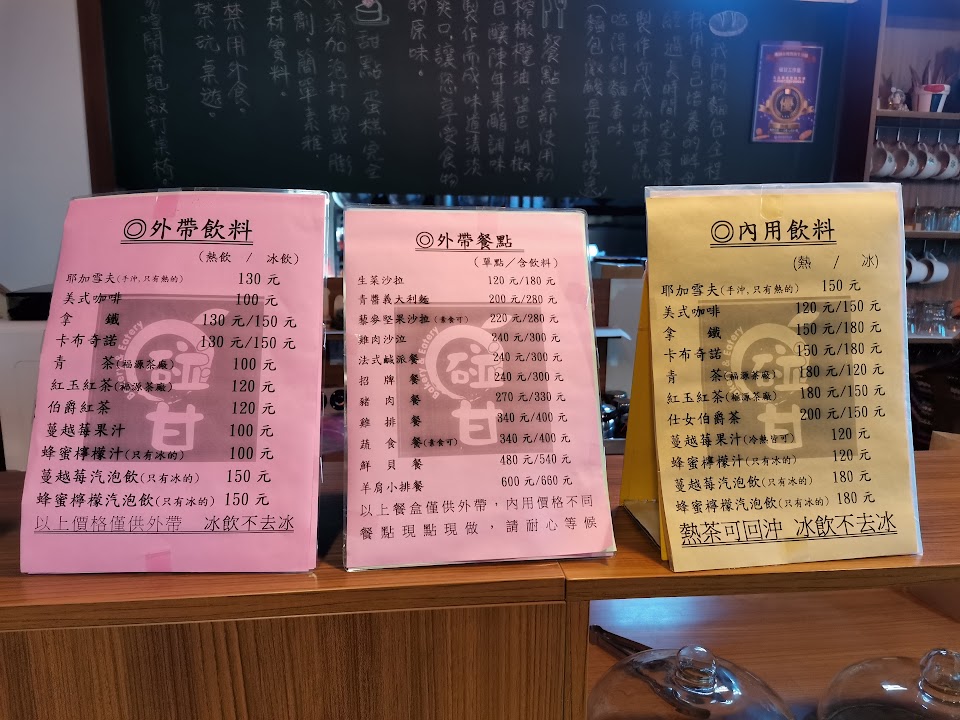 吃得到穀麥味
餐點全部使用初
榨橄欖油、黑胡椒
自釀陳年果醋調味
製作而成,味道清淡
爽口,讓您享受食物
的原味。
甜點、蛋糕完全
不添加泡打粉或膨
禁用外食。
◎外帶飲料
(熱飲 / 冰飲)
耶加雪夫(手沖,只有熱的) 130 元
美式咖啡 100 元
拿 鐵 130 元/150 元
卡布奇諾 130 元/150 元
青 茶(福源茶廠) 100 元
紅玉紅茶(福源茶廠) 120 元
伯爵紅茶 120 元
蔓越莓果汁 100 元
蜂蜜檸檬汁(只有冰的) 100 元
蔓越莓汽泡飲(只有冰的) 150 元
蜂蜜檸檬汽泡飲(只有冰的) 150 元
以上價格僅供外帶 冰飲不去冰
◎外帶餐點
(單點/含飲料)
生菜沙拉 120 元/180 元
青醬義大利麵 200 元/280 元
藜麥堅果沙拉(素食可) 220 元/280 元
雞肉沙拉 240 元/300 元
法式鹹派餐 240 元/300 元
招 牌 餐 240 元/300 元
豬 肉 餐 270 元/330 元
雞 排 餐 340 元/400 元
蔬 食 餐(素食可) 340 元/400 元
鮮 貝 餐 480 元/540 元
羊肩小排餐 600 元/660 元
以上餐盒僅供外帶,內用價格不同
餐點現點現做,請耐心等候
◎內用飲料
(熱 / 冰)
耶加雪夫(手沖,只有熱的) 150 元
美式咖啡 120 元/150 元
拿 鐵 150 元/180 元
卡布奇諾 150 元/180 元
青 茶(福源茶廠) 180 元/120 元
紅玉紅茶(福源茶廠) 180 元/150 元
仕女伯爵茶 200 元/150 元
蔓越莓果汁(冷熱皆可) 120 元
蜂蜜檸檬汁(只有冰的) 120 元
蔓越莓汽泡飲(只有冰的) 180 元
蜂蜜檸檬汽泡飲(只有冰的) 180 元
熱茶可回沖 冰飲不去冰